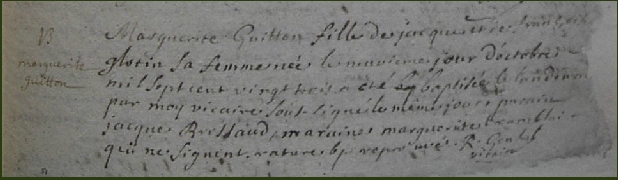 B
marguerite
guitton
Marguerite Guitton fille de jacques et de françoise
glotin sa femme née le neuvieme jour d'octobre
mil sept cent vingt trois a eté baptisée le landemain
par moy vicaire sous-signé le même jour parain
jacques Brillaud maraine marguerite
qui ne signent. rature bp reprouvé. R.
vicaire